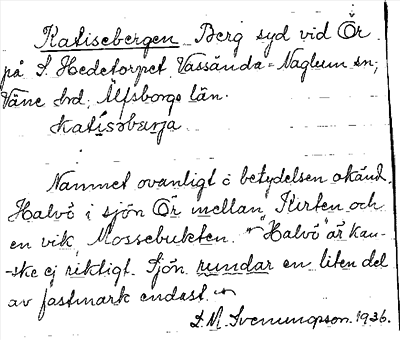 Katisebergen Berg syd vid Ör
på S. Hedetorpet Vassända-Naglum sn;
Väne hrd; Älfsborgs län.
Katisobærja
Namnet ovanligt o betydelsen okänd.
Halvö i sjön Ör mellan och
en vik, Mossebukten. "Halvö" är kan-
-ske ej riktigt. Sjön rundar en liten del
av fastmark endast.
D.M. Svenungsson. 1936.